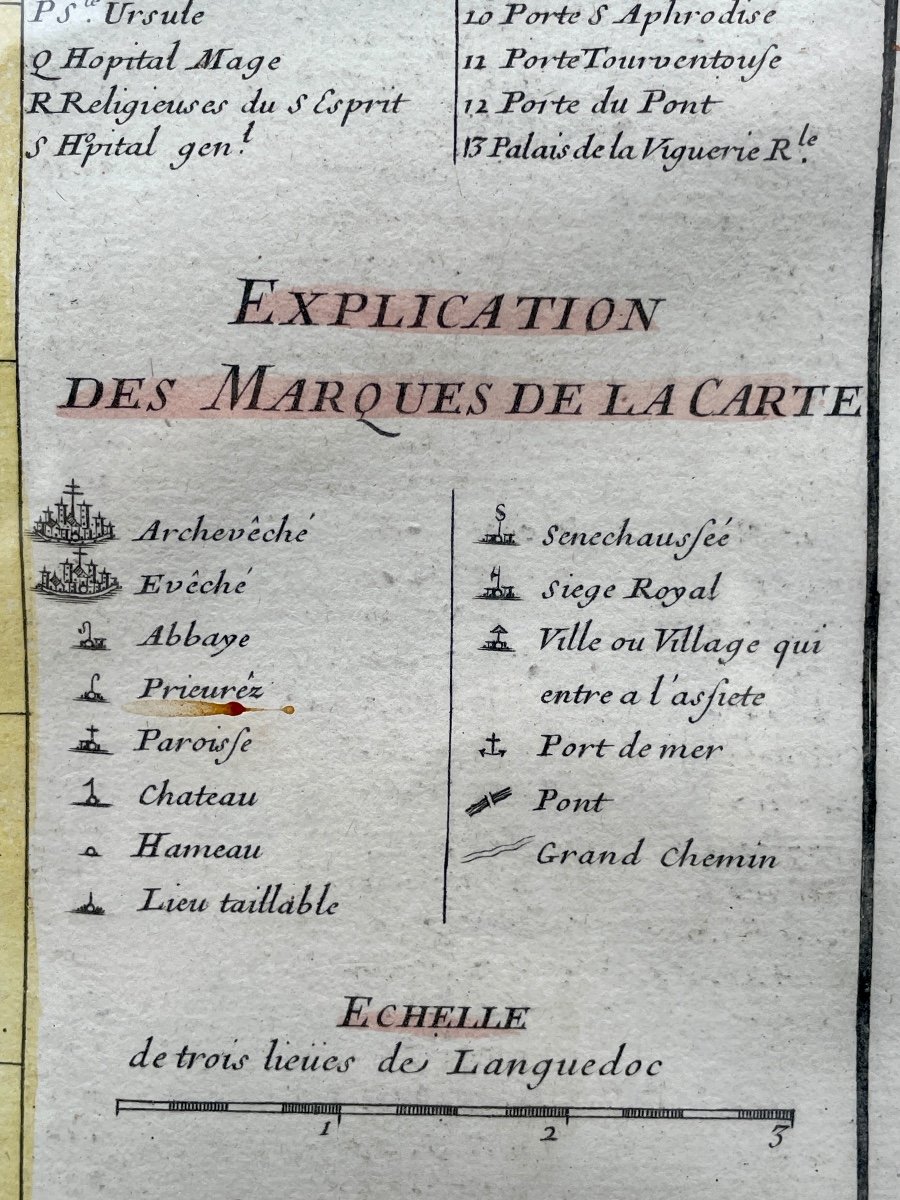 P Ste. Ursule
Q Hopital Mage
R Religieuses du S Esprit
S Hôpital gen.l
10 Porte S Aphrodise
11 Porte Tourventouſe
12 Porte du Pont
13 Palais de la Viguerie R.le
EXPLICATION
DES MARQUES DE LA CARTE
Archevêché
Evêché
Abbaye
Prieurêz
Paroiſse
Chateau
Hameau
Lieu taillable
S
Senechausſeé
Siege Royal
Ville ou Village qui
entre a l'asſiete
Port de mer
Pont
Grand Chemin
ECHELLE
de trois lieües de Languedoc
1 2 3